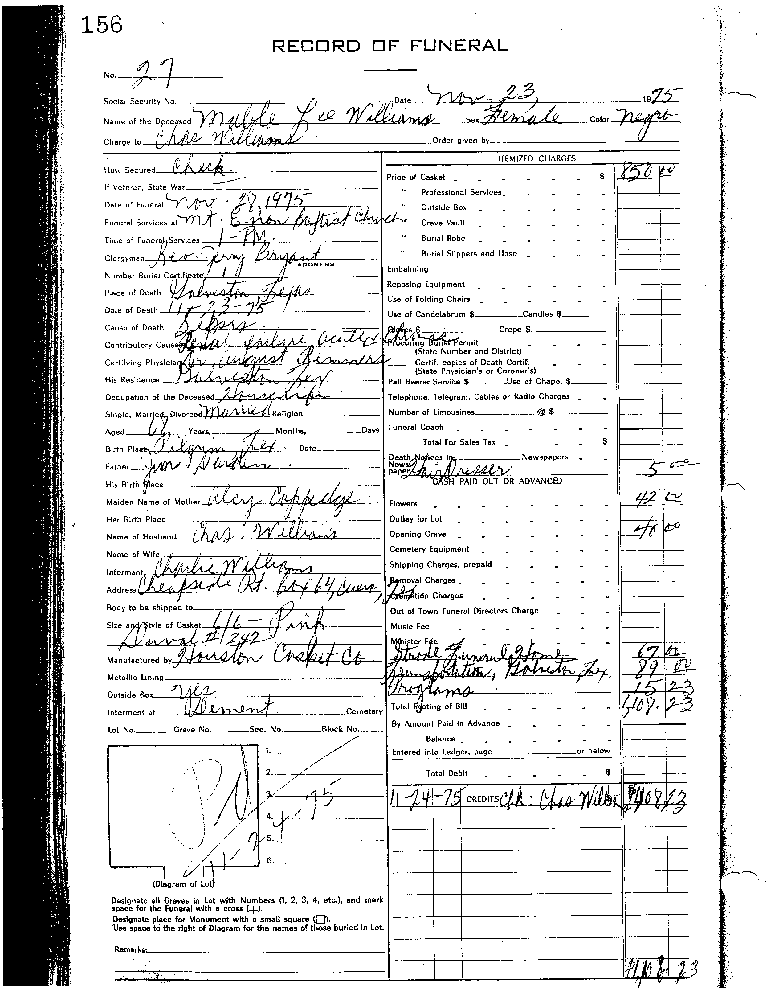 156
RECORD OF FUNERAL
No. 27
Social Security No. Date Nov. 23, 1975
Name of the Deceased Mable Lee Williams Sex Female Color Negro
Charge to Chas Williams Order given by
How Secured Check
If Veteran, State War
Date of Funeral Nov. 28, 1975
Funeral Services at Mt. Baptist Church
Time of Funeral Services 1-PM
Clergyman Rev. Bryant ADDRESS
Number Burial Certificate 1
Place of Death Galveston, Texas
Date of Death 11-23-75
Cause of Death
Contributory Causes Renal failure acute
Certifying Physician Dr. August
His Residence Galveston Tex
Occupation of the Deceased Housewife
Single, Married, Divorced Married Religion
Aged Years Months, Days
Birth Place Pilgrim Tex Date
Father Jim
His Birth Place
Maiden Name of Mother Coppedge
Her Birth Place
Name of Husband Chas. Williams
Name of Wife
Informant Charlie Williams
Address Cheapside Rt. Box 64, Cuero, Tex
Body to be shipped to
Size and Style of Casket 6/6 - Pink
#1242
Manufactured by Houston Casket Co
Metallic Lining
Outside Box yes
Interment at Dement Cemetery
Lot No. Grave No. Sec. No. Block No.
1.
2.
3.
4.
5.
6.
Pd 11-24-75
(Diagram of Lot)
Designate all Graves in Lot with Numbers (1, 2, 3, 4, etc.), and mark
space for the Funeral with a cross (+).
Designate place for Monument with a small square (□).
Use space to the right of Diagram for the names of those buried in Lot.
Remarks:
ITEMIZED CHARGES
Price of Casket $ 850 00
" Professional Services
" Outside Box
" Grave Vault
" Burial Robe
" Burial Slippers and Hose
Embalming
Reposing Equipment
Use of Folding Chairs
Use of Candelabrum $ Candles $
Gloves $ Crape $
Procuring Burial Permit
(State Number and District)
Certif. copies of Death Certif.
(State Physician's or Coroner's)
Pall Bearer Service $ Use of Chape. $
Telephone, Telegram, Cables or Radio Charges
Number of Limousines @ $
Funeral Coach
Total For Sales Tax $
Death Notices in Newspapers
Newspapers
Hair Dresser 5 00
CASH PAID OUT OR ADVANCED
Flowers 42 00
Outlay for Lot
Opening Grave 40 00
Cemetery Equipment
Shipping Charges, prepaid
Removal Charges
Cremation Charges
Out of Town Funeral Directors Charge
Music Fee
Minister Fee
Funeral Home 67 00
Transportation, Galveston Tex 89 00
Programs 15 23
Total Footing of Bill 1,108.23
By Amount Paid in Advance
Balance
Entered into Ledger, page or below
Total Debit $
11-24-75 CREDITS Ck. Chas 1108 23
1108 23